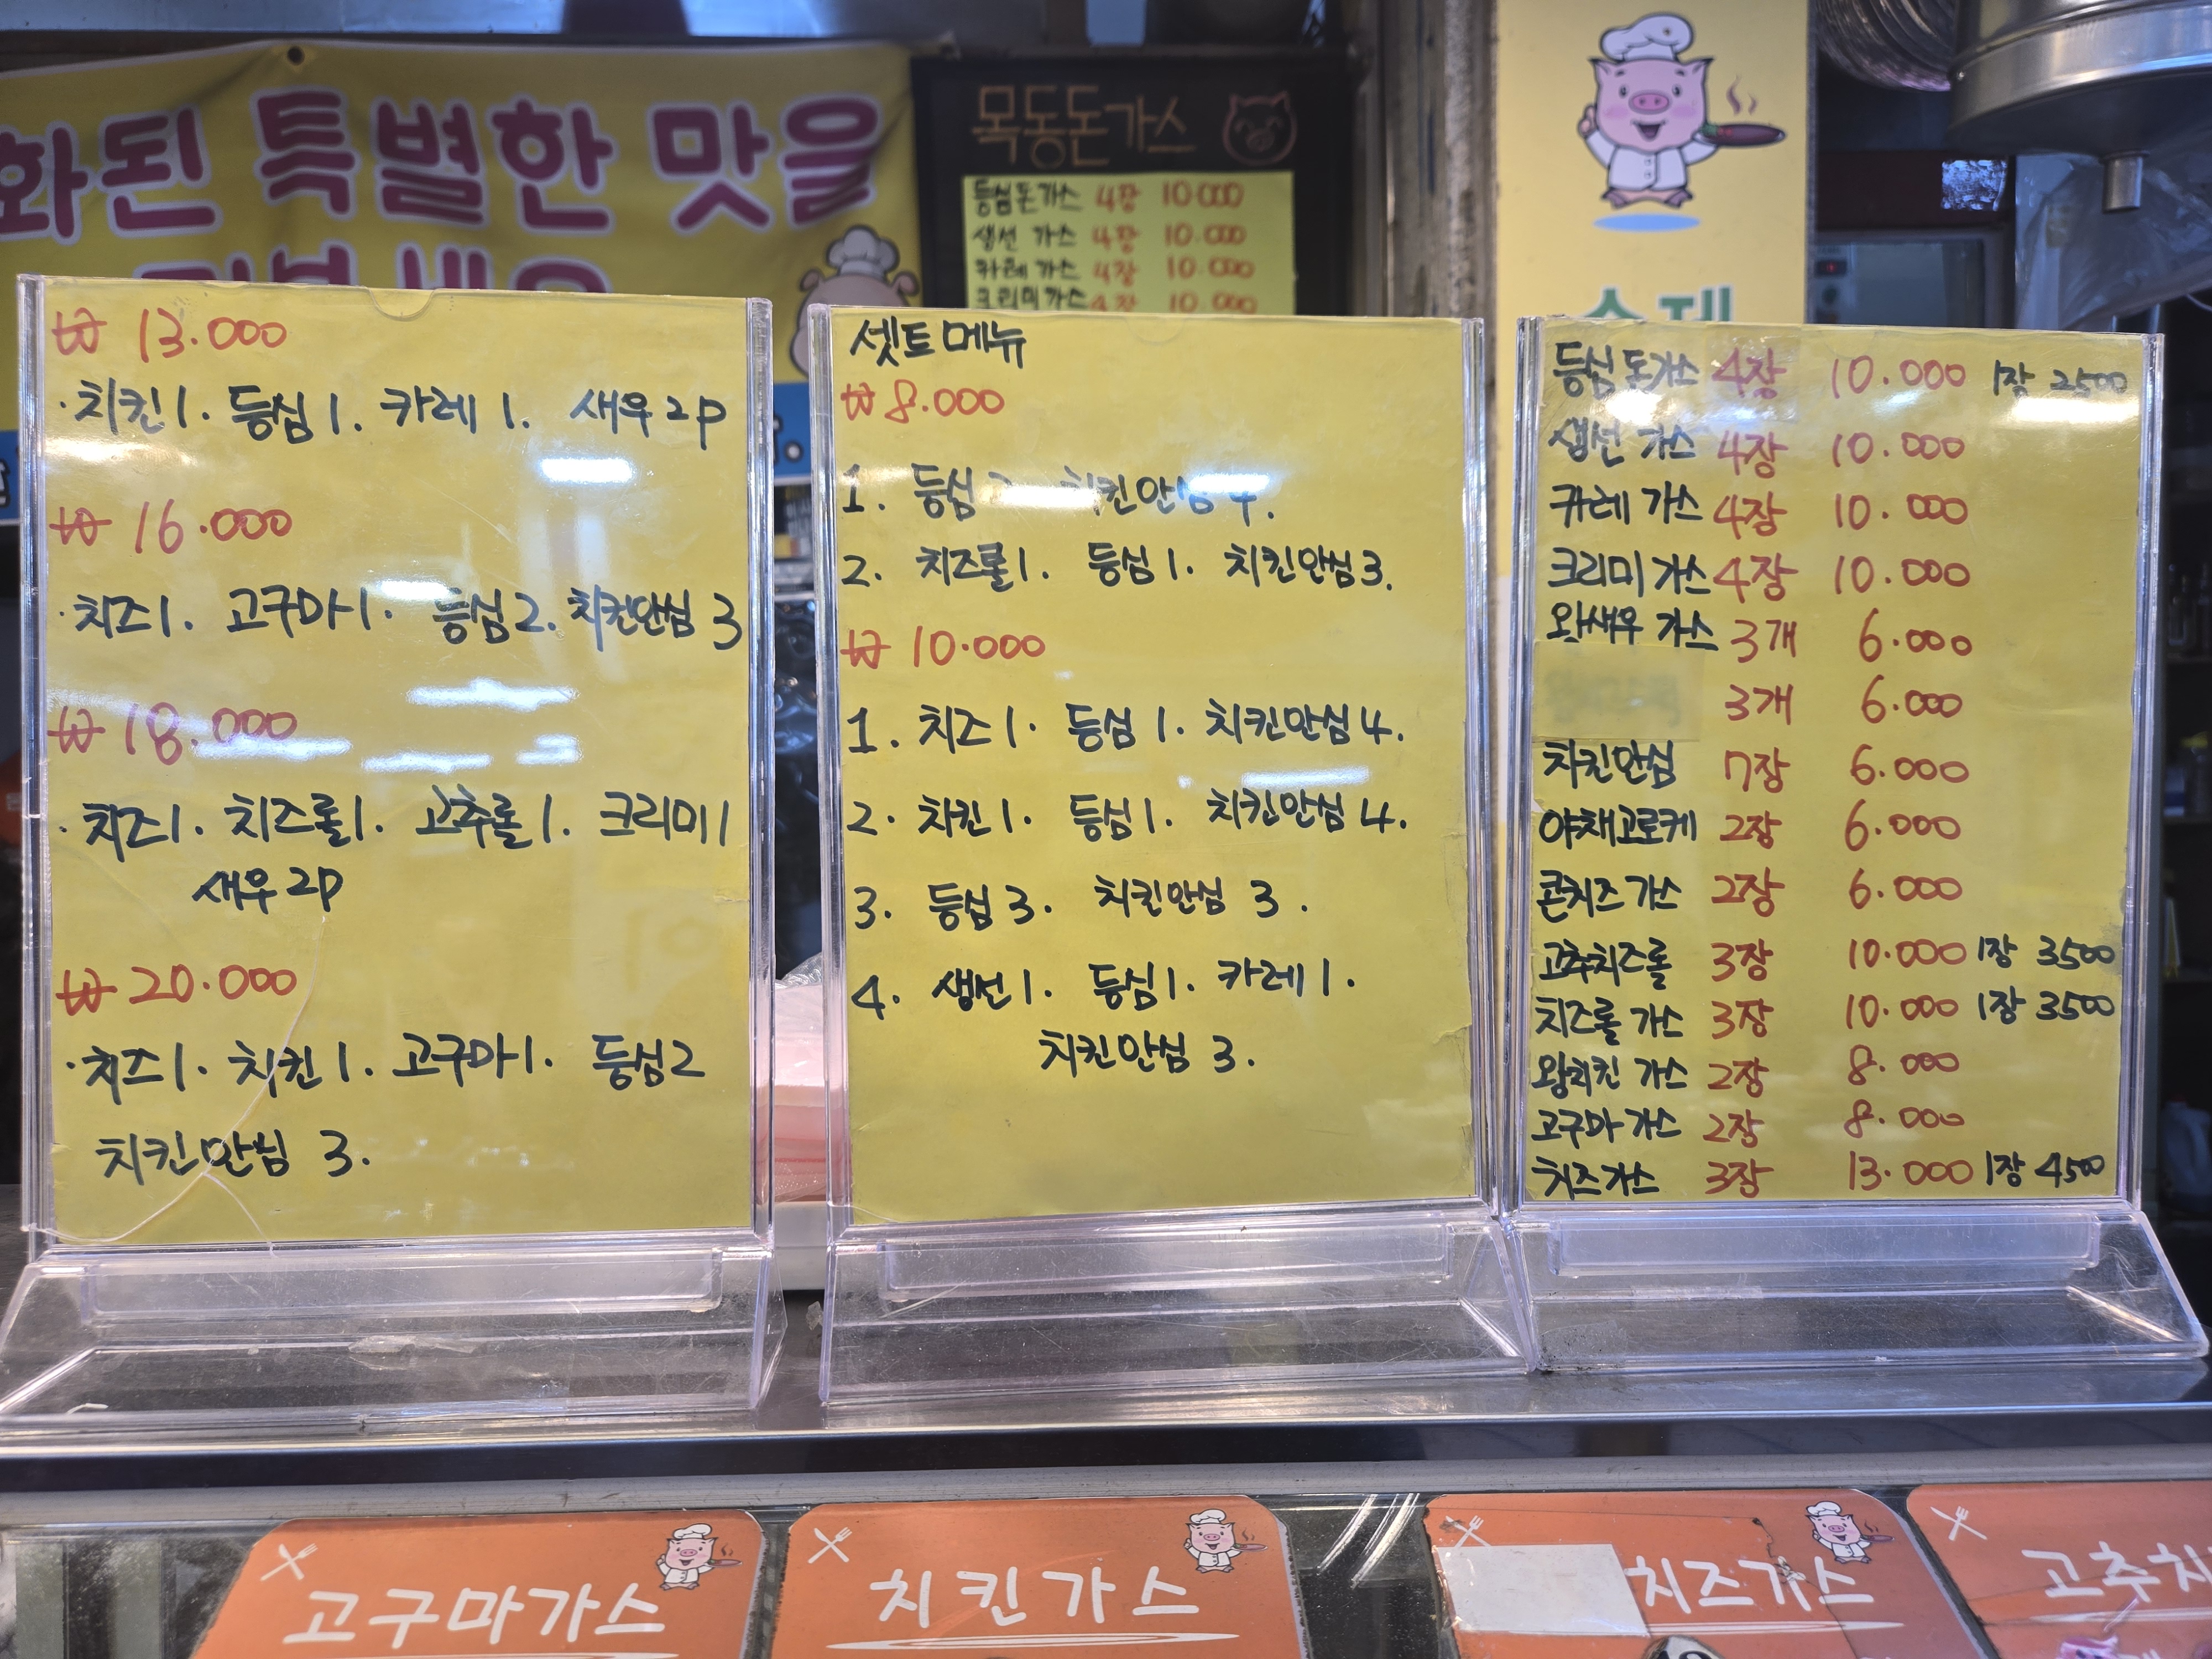 화된 특별한 맛을
목동돈가스
등심돈가스 4장 10.000
생선 가스 4장 10.000
카레 가스 4장 10.000
크리미가스 4장 10.000
수제
₩ 13.000
· 치킨 1. 등심 1. 카레 1. 새우 2p
₩ 16.000
· 치즈 1. 고구마 1. 등심 2. 치킨안심 3
₩ 18.000
· 치즈 1. 치즈롤 1. 고추롤 1. 크리미 1
새우 2p
₩ 20.000
· 치즈 1. 치킨 1. 고구마 1. 등심 2
치킨안심 3.
셋트 메뉴
₩ 8.000
1. 등심 치킨안심 4.
2. 치즈롤 1. 등심 1. 치킨안심 3.
₩ 10.000
1. 치즈 1. 등심 1. 치킨안심 4.
2. 치킨 1. 등심 1. 치킨안심 4.
3. 등심 3. 치킨안심 3.
4. 생선 1. 등심 1. 카레 1.
치킨안심 3.
등심돈가스 4장 10.000 1장 2500
생선 가스 4장 10.000
카레 가스 4장 10.000
크리미 가스 4장 10.000
왕새우 가스 3개 6.000
3개 6.000
치킨안심 7장 6.000
야채고로케 2장 6.000
콘치즈 가스 2장 6.000
고추치즈롤 3장 10.000 1장 3500
치즈롤 가스 3장 10.000 1장 3500
왕치킨 가스 2장 8.000
고구마 가스 2장 8.000
치즈가스 3장 13.000 1장 4500
고구마가스
치킨가스
치즈가스
고추치